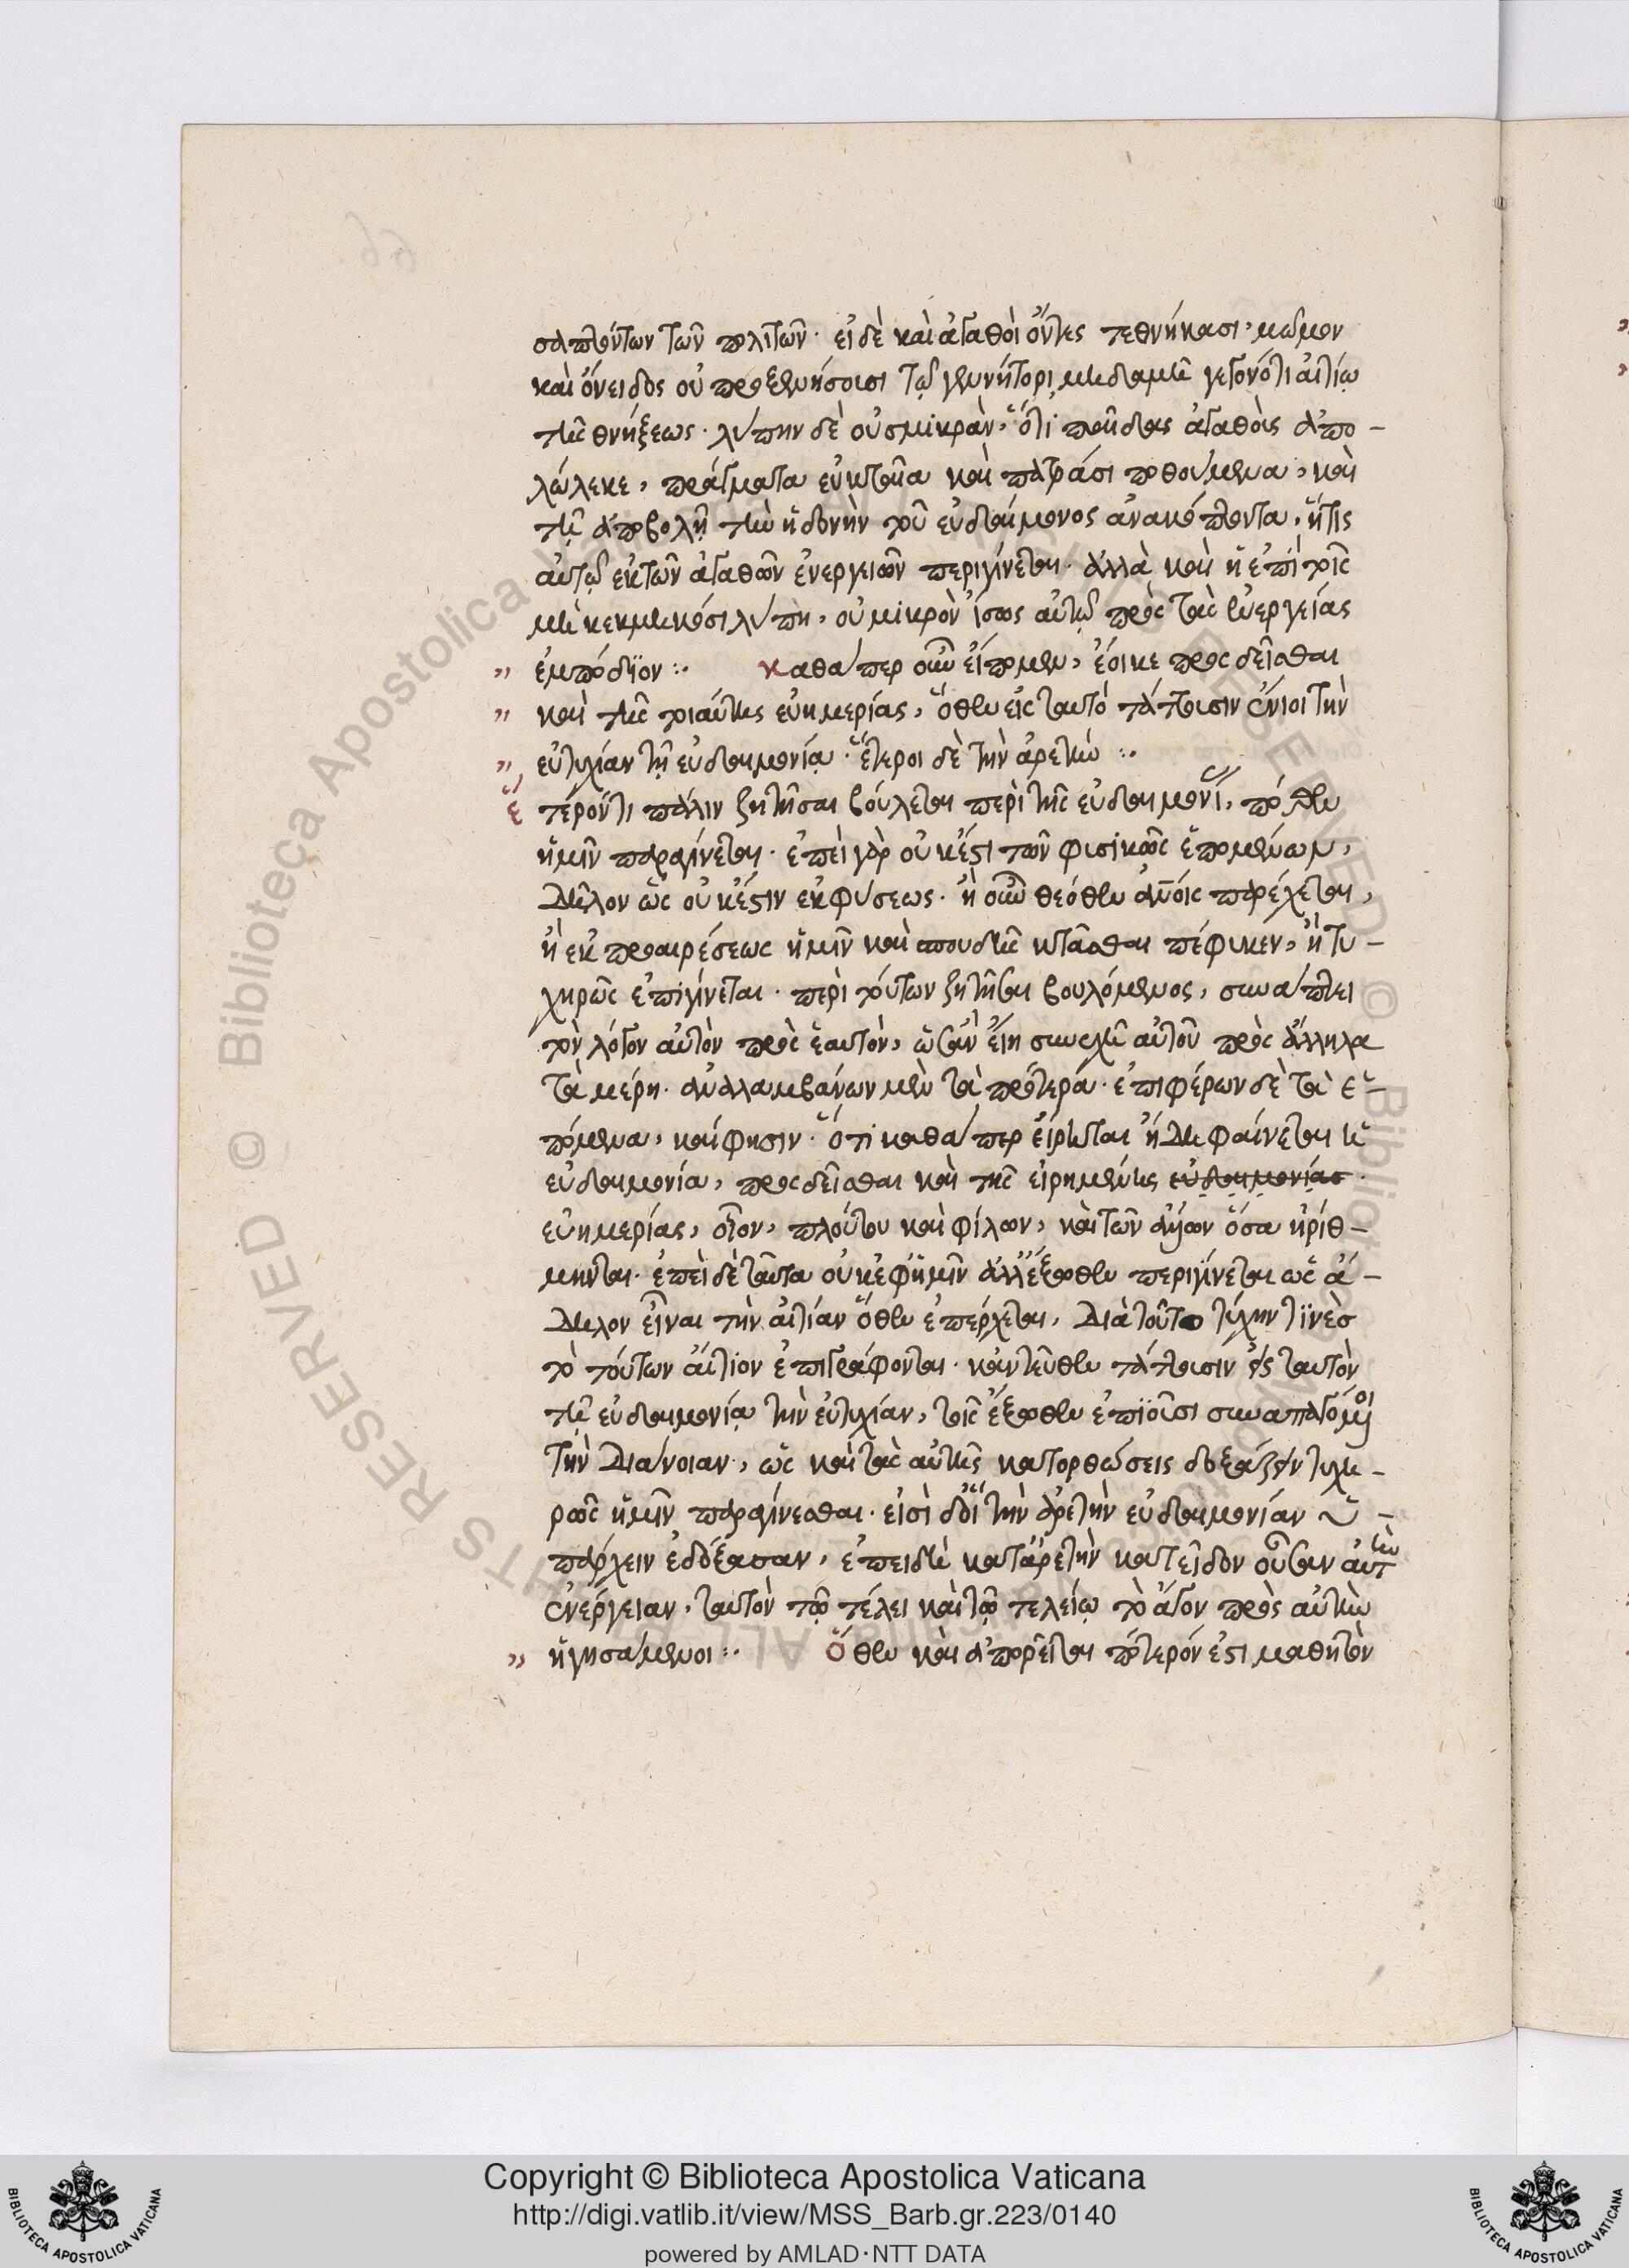 σαπόντων τῶν πολιτῶν· εἰ δὲ καὶ ἀγαθοὶ ὄντες τεθνήκασι, μῶμον
καὶ ὄνειδος οὐ προξενήσουσι τῷ γεννήτορι μηδαμῆ γεγονότι αἰτίῳ
τῆς θνήξεως· λύπην δὲ οὐ σμικρὰν, ὅτι παῖδας ἀγαθοὺς ἀπο-
λώλεκε, πράγματα εὐκταῖα καὶ πατράσι ποθούμενα, καὶ
τῇ ἀποβολῇ τὴν ἡδονὴν τοῦ εὐδαίμονος ἀνακόπτοντα, ἥτις
αὐτῷ ἐκ τῶν ἀγαθῶν ἐνεργειῶν περιγίνεται. ἀλλὰ καὶ ἡ ἐπὶ τοῖς
μὴ κεκμηκόσι λύπη, οὐ μικρὸν ἴσως αὐτῷ πρὸς τὰς ἐνεργείας
ἐμπόδιον :· καθάπερ οὖν εἴπομεν, ἔοικε προσδεῖσθαι
καὶ τῆς τοιαύτης εὐημερίας, ὅθεν εἰς ταυτό τάττουσιν ἔνιοι τὴν
εὐτυχίαν τῇ εὐδαιμονίᾳ. ἕτεροι δὲ τὴν ἀρετὴν :·
ἕτερόν τι πάλιν ζητῆσαι βούλεται περὶ τῆς εὐδαιμονί, πόθεν
ἡμῖν παραγίνεται. ἐπεὶ γὰρ οὐκ ἔστι τῶν φυσικῶς ἑπομένων,
δῆλον ὡς οὐκ ἔστιν ἐκ φύσεως. ἢ οὖν θεόθεν ἀνοις παρέχεται,
ἢ ἐκ προαιρέσεως ἡμῖν καὶ σπουδῆς κτᾶσθαι πέφυκεν, ἢ τυ-
χηρῶς ἐπιγίνεται. περὶ τούτων ζητῆσαι βουλόμενος, συνάπτει
τὸν λόγον αὐτὸν πρὸς ἑαυτὸν, ὡς ἂν εἴη συνεχῆ αὐτοῦ πρὸς ἄλληλα
τὰ μέρη. ἀναλαμβάνων μὲν τὰ πρότερα. ἐπιφέρων δὲ τὰ ἑ-
πόμενα, καί φησιν· ὅτι καθάπερ εἴρηται ἤδη φαίνεται ἡ
εὐδαιμονία, προσδεῖσθαι καὶ τῆς εἰρημένης εὐδαιμονίας·
εὐημερίας, οἷον, πλούτου καὶ φίλων, καὶ τῶν ἄλλων ὅσα ἠρίθ-
μηνται. ἐπεὶ δὲ ταῦτα οὐκ ἐφ' ἡμῖν ἀλλ' ἔξωθεν περιγίνεται ὡς ἄ-
δηλον εἶναι τὴν αἰτίαν ὅθεν ἐπέρχεται, διὰ τοῦτο τύχην τινὲς
τὸ τούτων αἴτιον ἐπιγράφονται. κἀντεῦθεν τάττουσιν εἰς ταυτὸν
τῇ εὐδαιμονίᾳ τὴν εὐτυχίαν, τοῖς ἔξωθεν ἐπιοῦσι συναπαγόμενοι
τὴν διάνοιαν, ὡς καὶ τὰς αὐτῆς κατορθώσεις δοξάζειν τυχη-
ρῶς ἡμῖν παραγίνεσθαι. εἰσὶ δ' οἳ τὴν ἀρετὴν εὐδαιμονίαν ὑ-
πάρχειν ἐδόξασαν, ἐπειδὴ κατ' ἀρετὴν κατεῖδον οὖσαν αὐτὴν
ἐνέργειαν, ταυτὸν τῷ τέλει καὶ τῷ τελείῳ τὸ ἄγον πρὸς αὐτὴν
ἡγησάμενοι :· ὅθεν καὶ ἀπορεῖται πότερόν ἐστι μαθητὸν
Copyright © Biblioteca Apostolica Vaticana
http://digi.vatlib.it/view/MSS_Barb.gr.223/0140
powered by AMLAD·NTT DATA